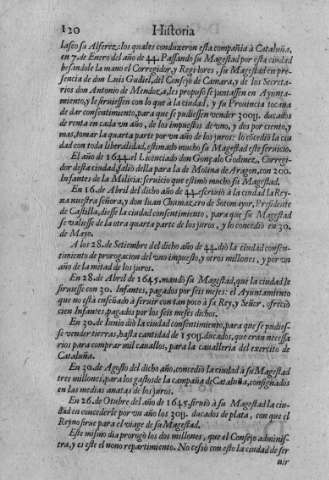 120 Historia
lasco su Alferez: los quales conduxeron esta compañia à Cataluña,
en 7. de Enero del año de 44. Passando su Magestad por esta ciudad
besandole la mano el Corregidor, y Regidores, su Magestad en pre-
sencia de don Luis Gudiel, del Consejo de Camara, y de los Secreta-
rios don Antonio de Mendoza, les propuso se juntassen en Ayunta-
miento, y le siruiessen con lo que à la ciudad, y su Prouincia tocaua
de dar consentimiento, para que se pudiessen vender 300y. ducados
de renta en cada vn año, de los impuestos de vno, y dos por ciento, y
mas, tomar la quarta parte por vn año de los juros: lo cõcediò la ciu-
dad con toda liberalidad, estimado mucho su Magestad este seruicio.
El año de 1644. el Licenciado don Gonçalo Godinez, Corregi-
dor desta ciudad, saliò della para la de Molina de Aragon, con 200.
Infantes de la Milicia: seruicio que estimò mucho su Magestad.
En 16. de Abril del dicho año de 44. escriuiò à la ciudad la Rey-
na nuestra señora, y don Iuan Chumazero de Sotomayor, Presidente
de Castilla, diesse la ciudad consentimiento, para que su Magestad
se valiesse de la otra quarta parte de los juros, y lo concediò en 30.
de Mayo.
A los 28. de Setiembre del dicho año de 44. diò la ciudad consen-
timiento de prorogacion del vno impuesto, y otros millones, y por vn
año de la mitad de los juros.
En 28. de Abril de 1645. mandò su Magestad, que la ciudad le
siruiesse con 20. Infantes, pagados por seis meses: el Ayuntamiento
que no està enseñado à seruir con tan poco à su Rey, y Señor, ofreciò
cien Infantes, pagados por los seis meses dichos.
En 20. de Iunio diò la ciudad consentimiento, para que se pudies-
se vender tierras, hasta cantidad de 150y. ducados, que eran necessa
rios para comprar mil cauallos, para la caualleria del exercito de
Cataluña.
En 20. de Agosto del dicho año, concediò la ciudad à su Magestad
tres millones, para los gastos de la campaña de Cataluña, consignados
en las medias anatas de los juros.
En 26. de Otubre del año de 1645. siruiò à su Magestad la ciu-
dad en concederle por vn año los 20y. ducados de plata, con que el
Reyno sirue para el viage de su Magestad.
Este mismo dia prorogò los dos millones, que el Consejo adminis-
tra, y es este el nono repartimiento. No cessò con esto la ciudad de ser
uir